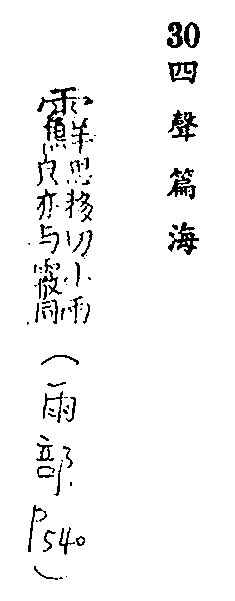 30四聲篇海
思移切小雨
皃亦与同
（雨部P540）